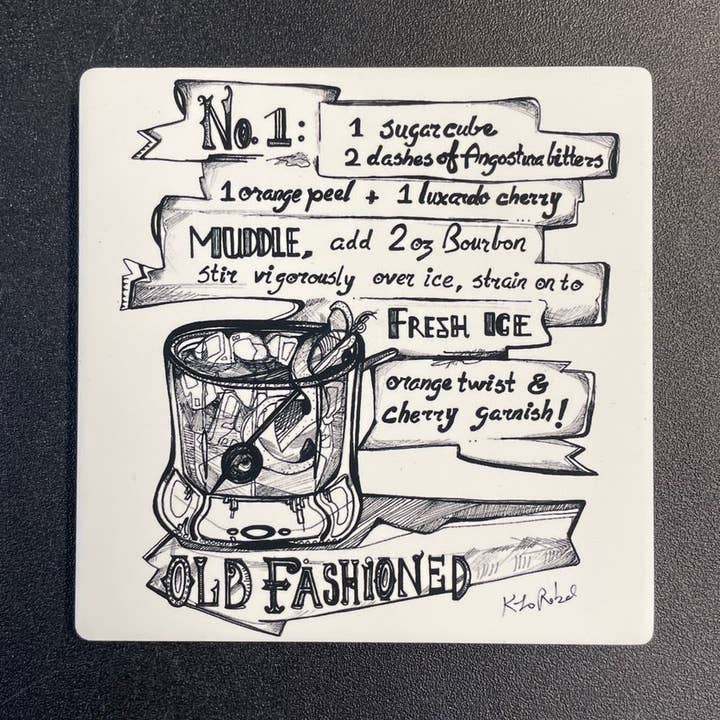 No. 1:
1 sugar cube
2 dashes of Angostura bitters
1 orange peel + 1 luxardo cherry
MUDDLE, add 2 oz Bourbon
stir vigorously over ice, strain on to
FRESH ICE
orange twist &
cherry garnish!
OLD FASHIONED